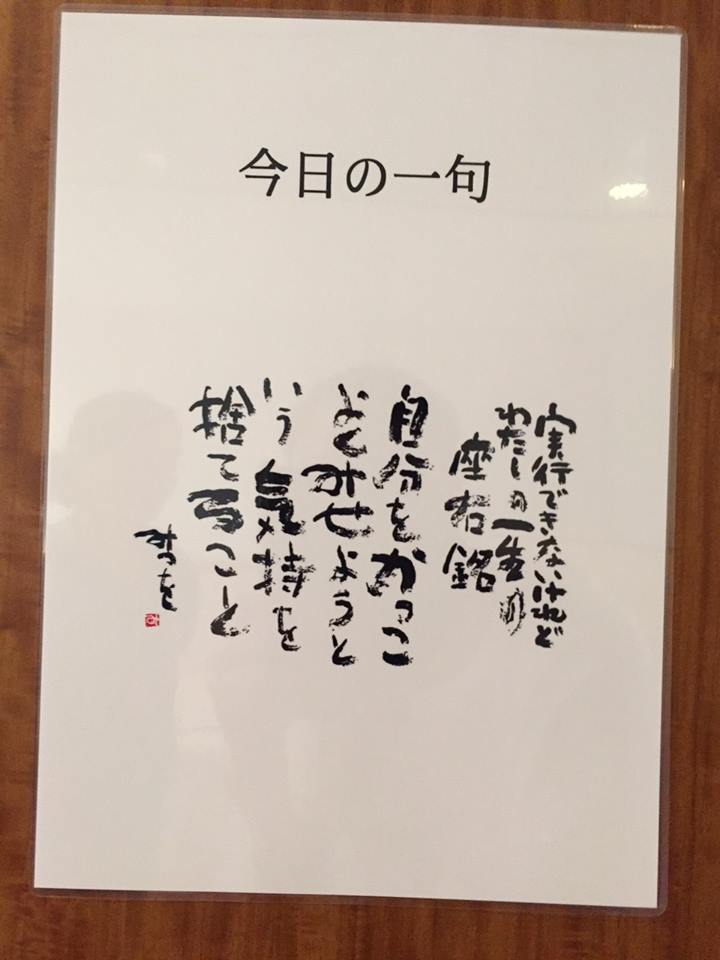 今日の一句
実行できないけれど
わたしの一生の
座右銘
自分をかっこ
よくみせようと
いう気持を
捨てること
みつを